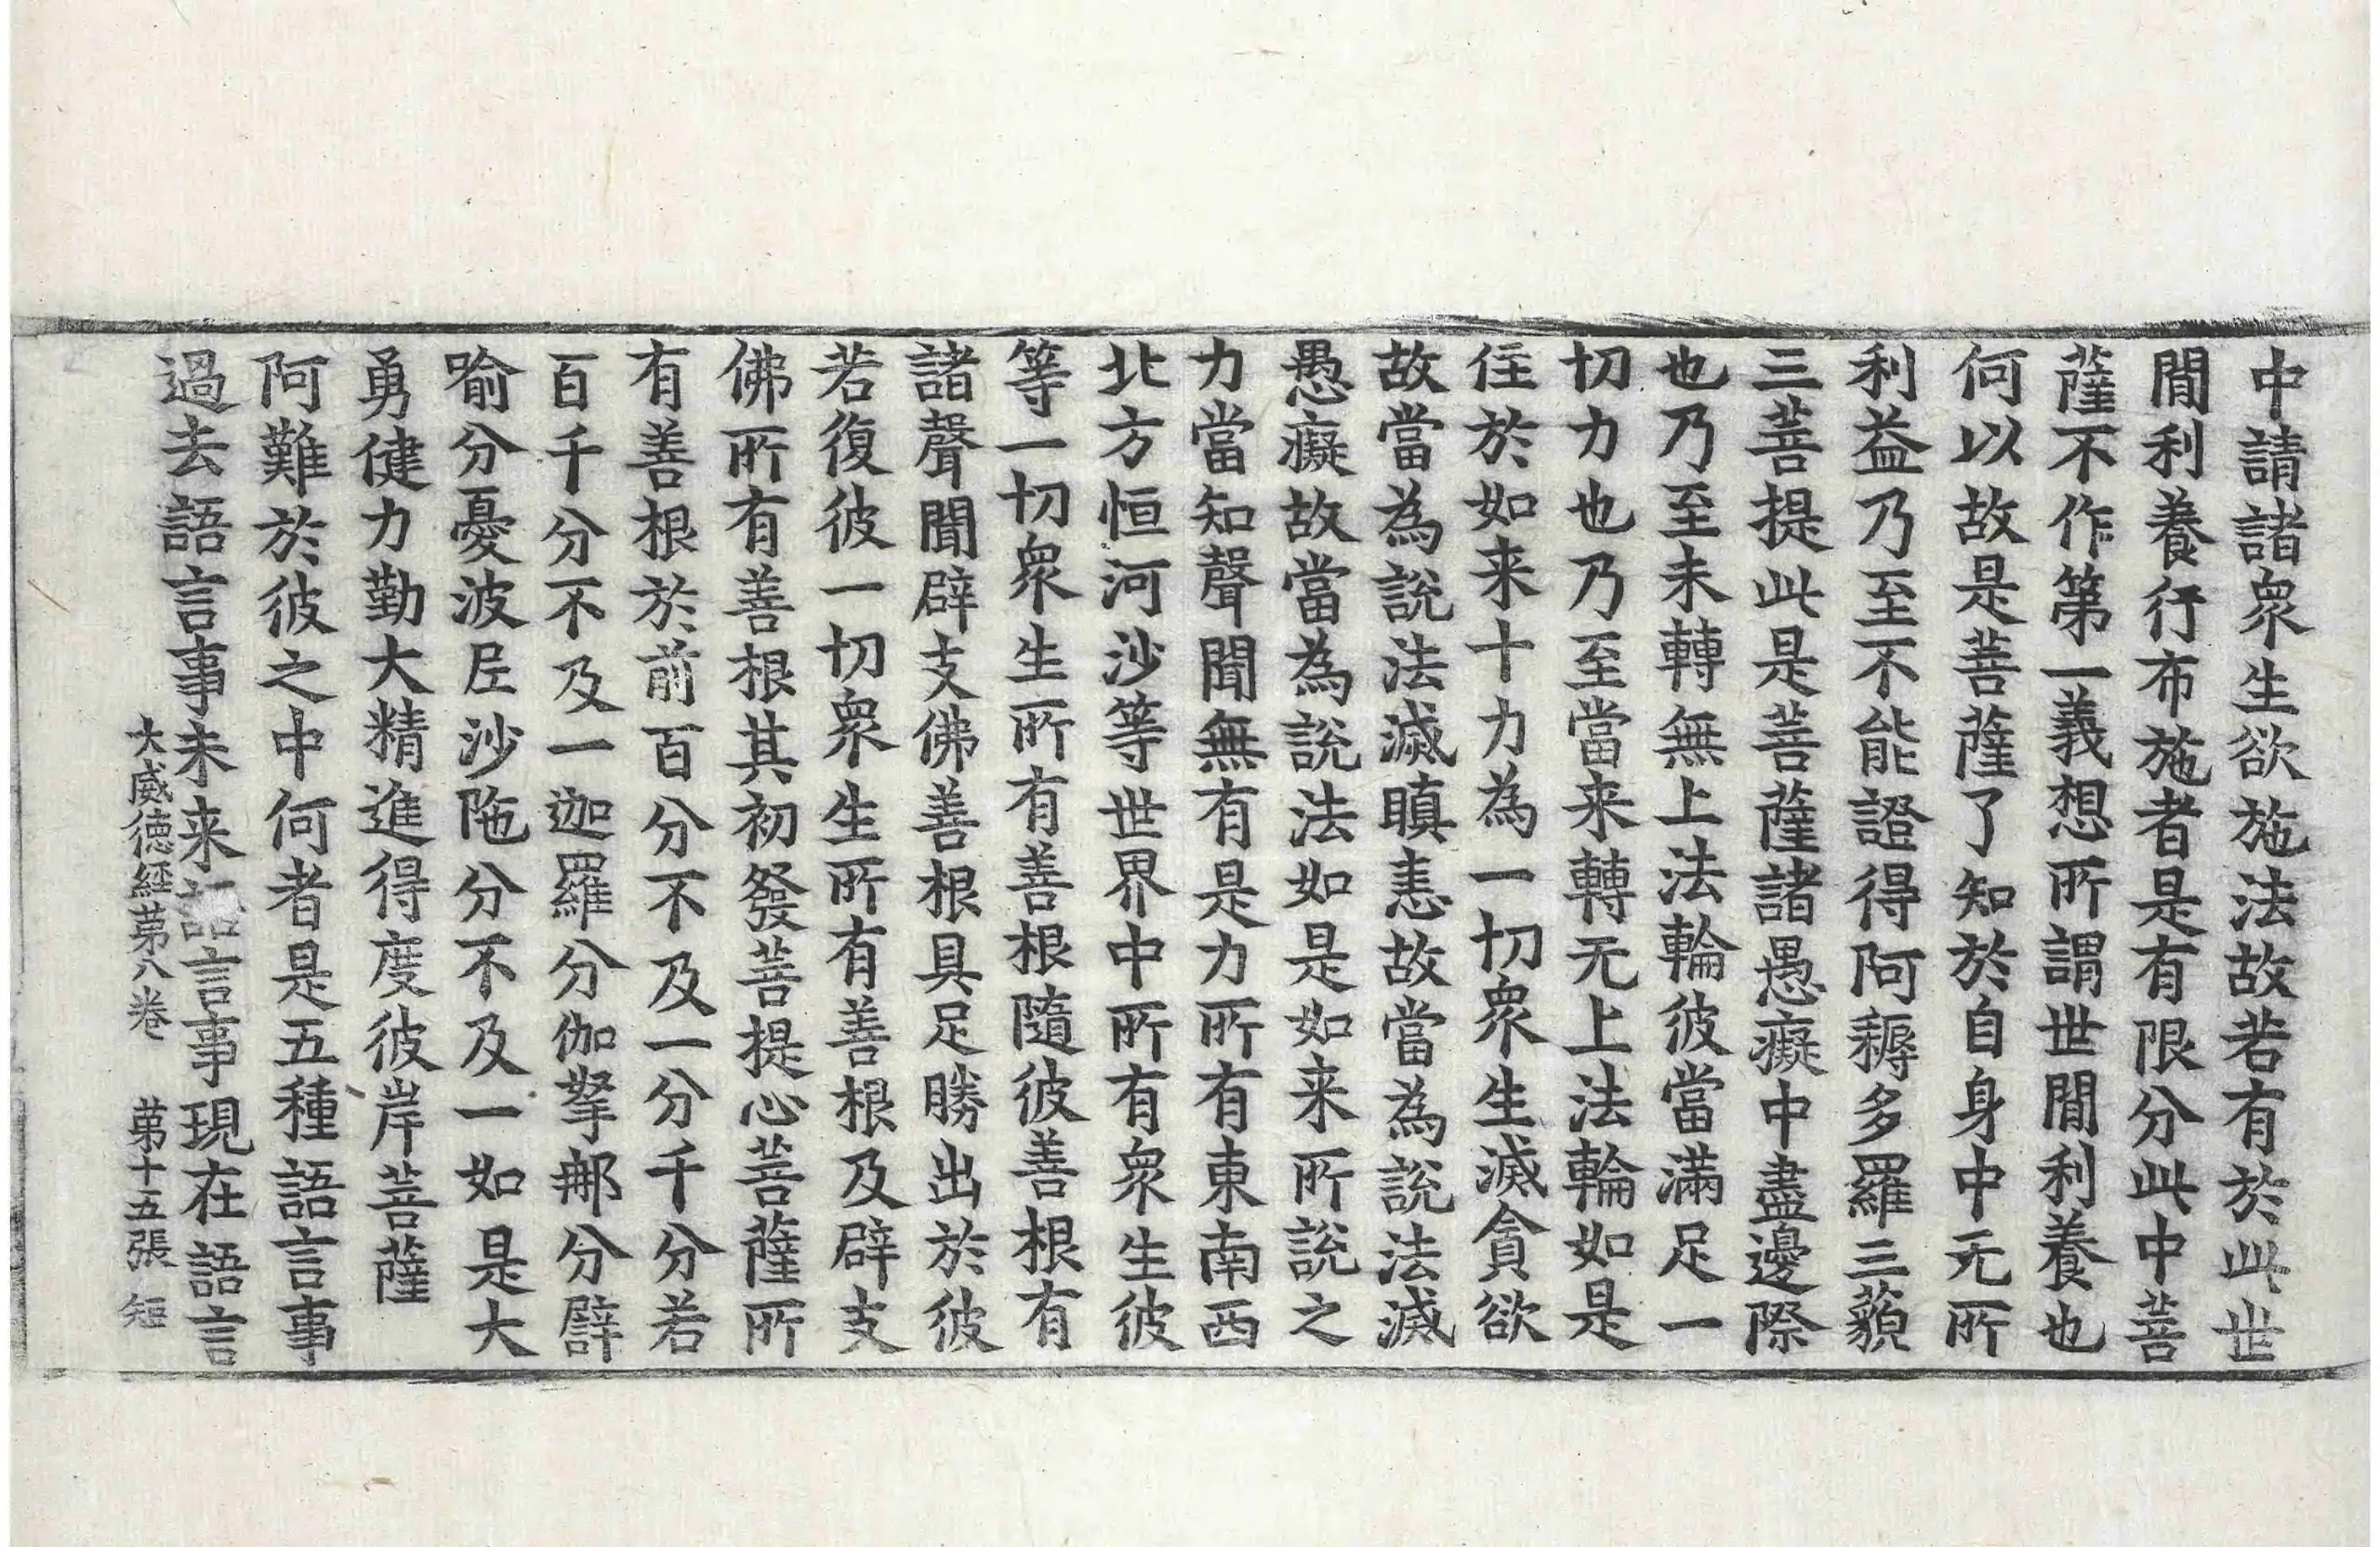 中請諸衆生欲施法故若有於此世
閒利養行布施者是有限分此中菩
薩不作第一義想所謂世閒利養也
何以故是菩薩了知於自身中无所
利益乃至不能證得阿耨多羅三藐
三菩提此是菩薩諸愚癡中盡邊際
也乃至未轉無上法輪彼當滿足一
切力也乃至當来轉无上法輪如是
住於如来十力為一切衆生滅貪欲
故當為說法滅瞋恚故當為說法滅
愚癡故當為說法如是如来所說之
力當知聲聞無有是力所有東南西
北方恒河沙等世界中所有衆生彼
等一切衆生所有善根隨彼善根有
諸聲聞辟支佛善根具足勝出於彼
若復彼一切衆生所有善根及辟支
佛所有善根其初發菩提心菩薩所
有善根於前百分不及一分千分若
百千分不及一迦羅分伽拏那分譬
喻分憂波尼沙陁分不及一如是大
勇健力勤大精進得度彼岸菩薩
阿難於彼之中何者是五種語言事
過去語言事未来語言事現在語言
大威德經第八卷　第十五張　短